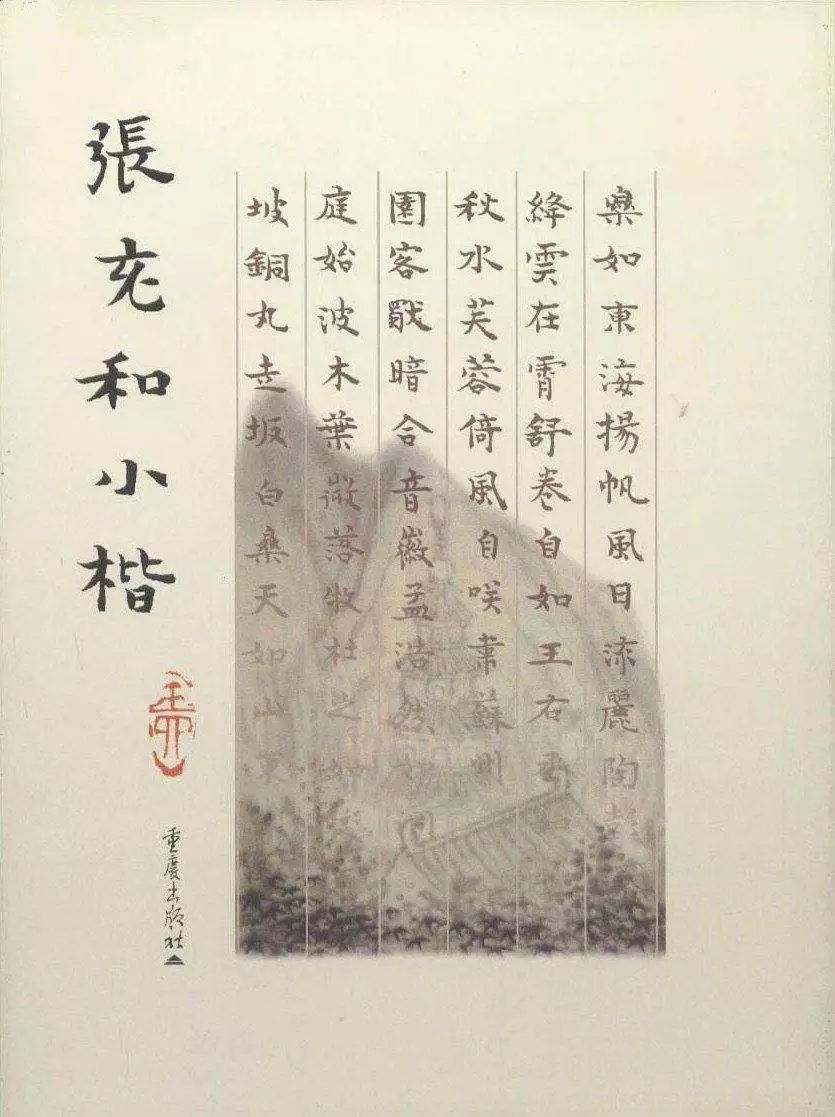 張充和小楷
重慶出版社
樂如東海揚帆風日流麗陶
絳雲在霄舒卷自如王右
秋水芙蓉倚風自咲韋蘇州
園客暗合音徽孟浩然
庭始波木葉微落牧杜之如
坡銅丸走坂白樂天如山東